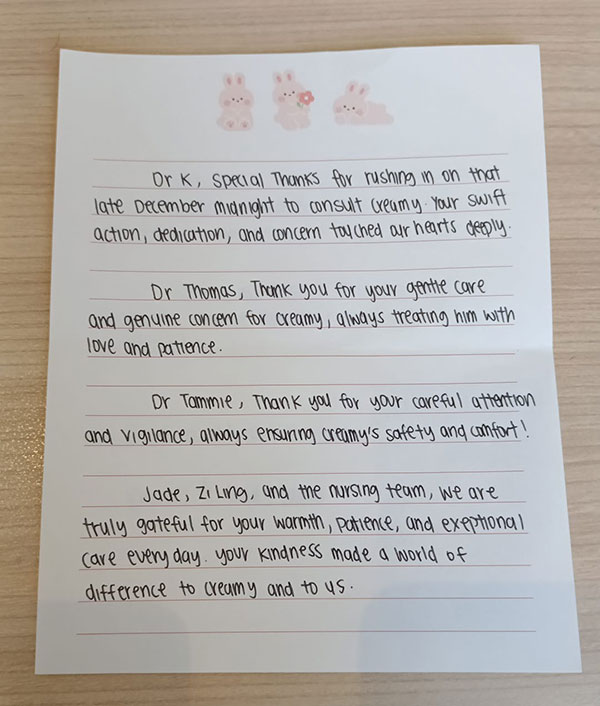 Dr K, Special Thanks for rushing in on that
late December midnight to consult Creamy. Your swift
action, dedication, and concern touched our hearts deeply.
Dr Thomas, Thank you for your gentle care
and genuine concern for Creamy, always treating him with
love and patience.
Dr Tammie, Thank you for your careful attention
and vigilance, always ensuring Creamy's safety and comfort!
Jade, Zi Ling, and the nursing team, We are
truly gateful for your warmth, patience, and exeptional
care everyday. Your kindness made a world of
difference to Creamy and to us.